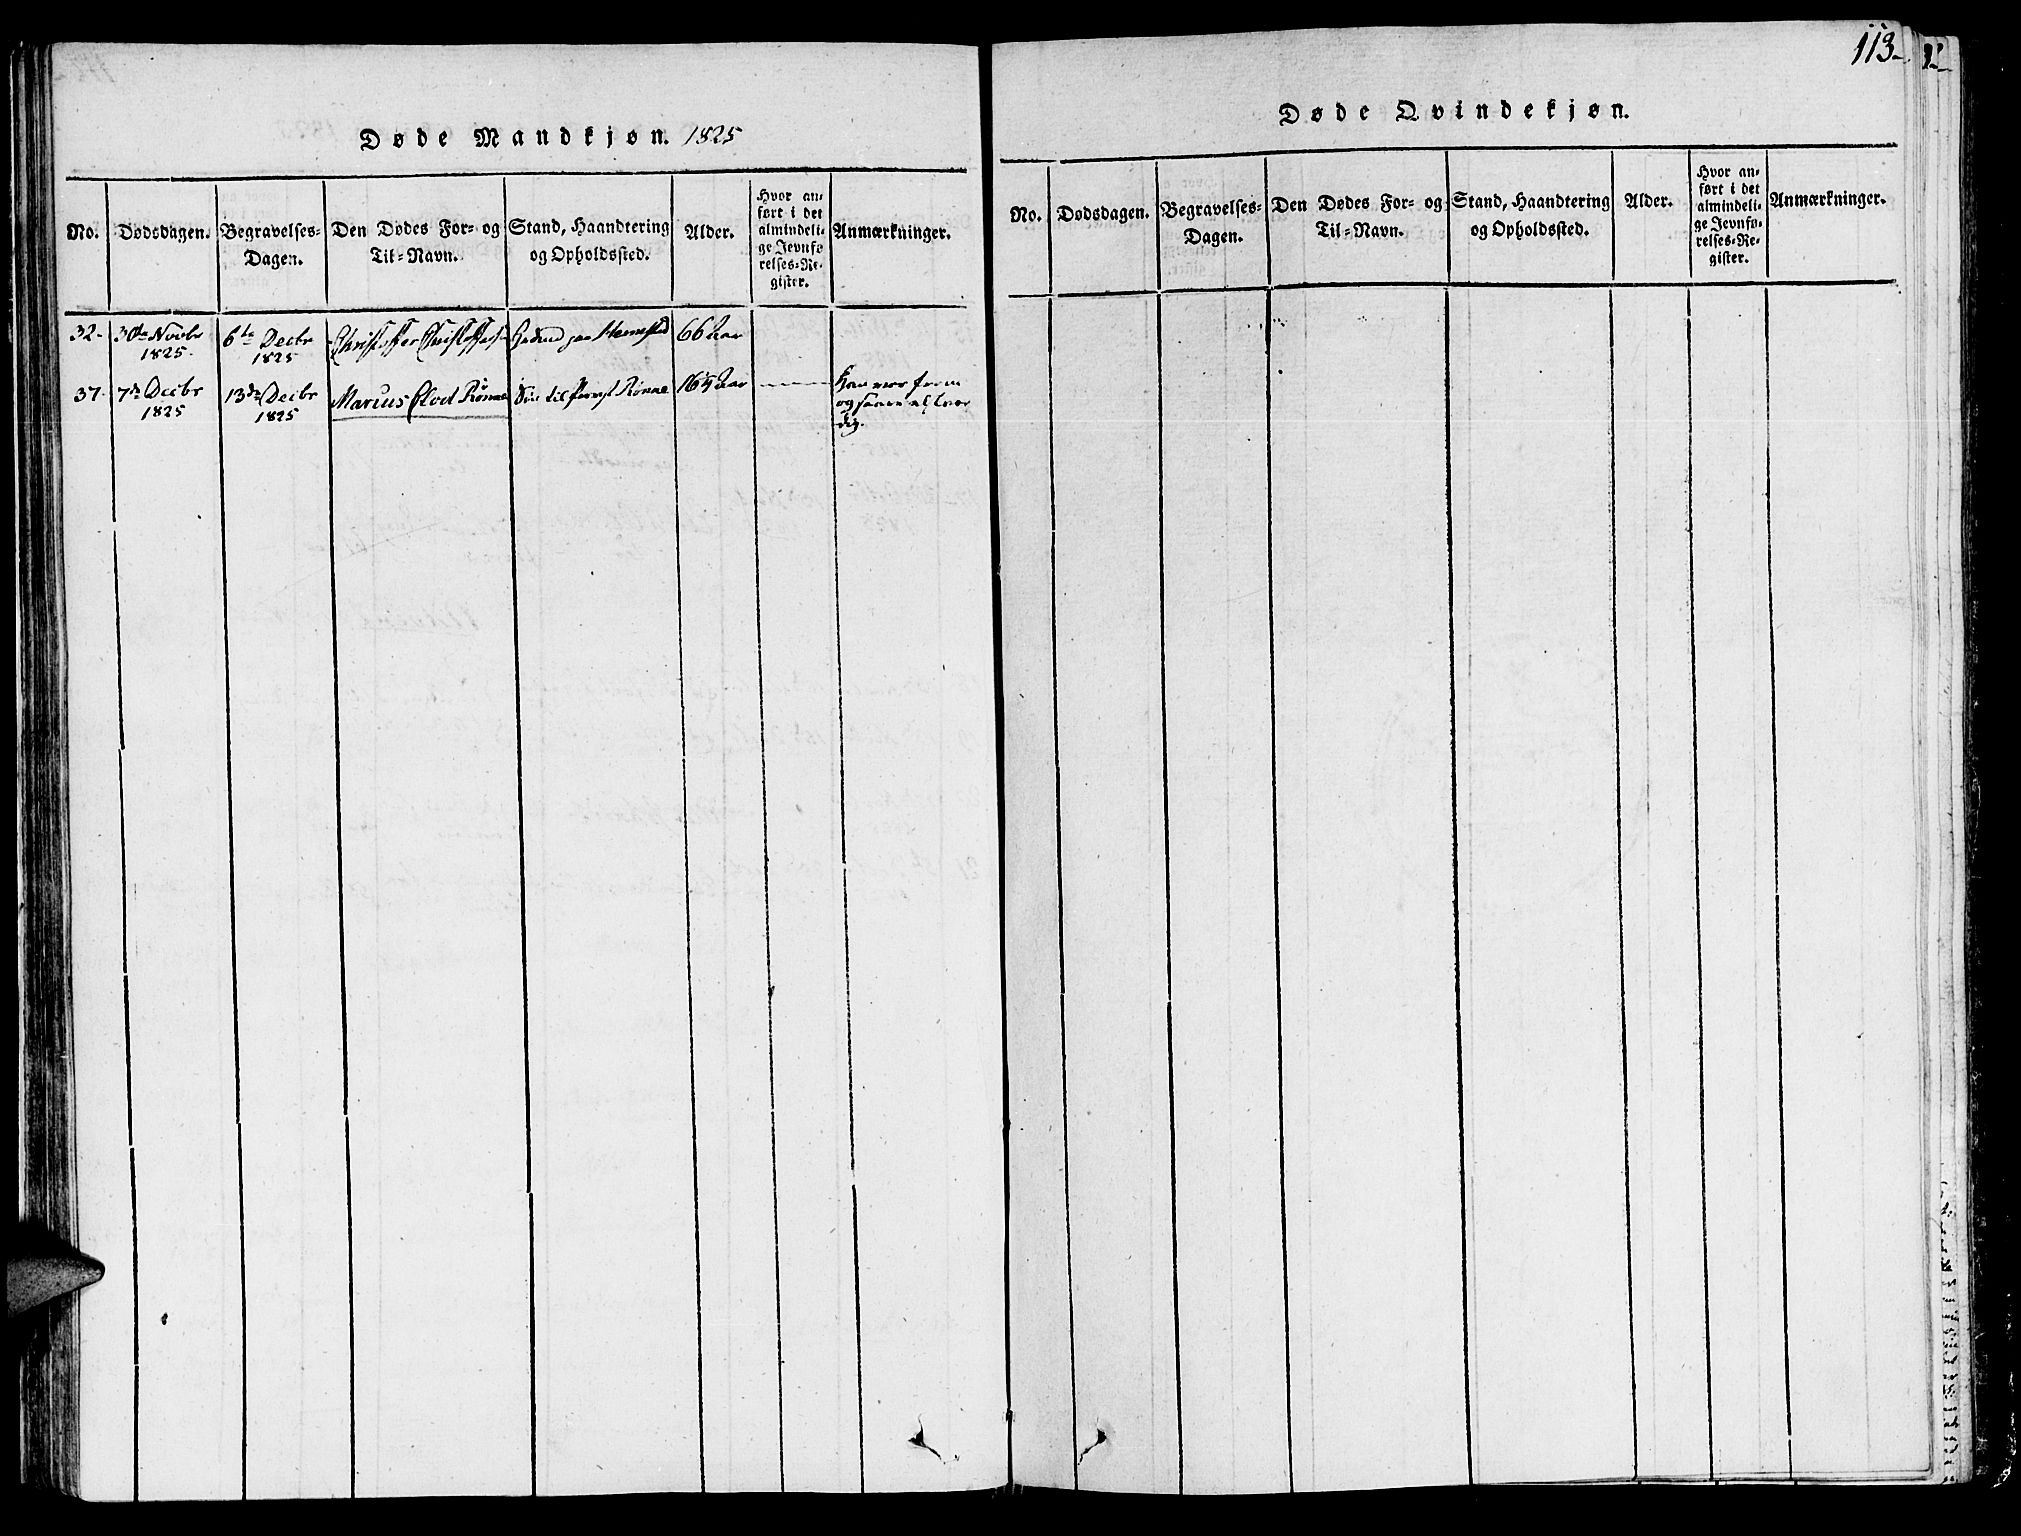 113
Døde Mandkjøn. 1825
No.
Dødsdagen.
Begravelses-
Dagen.
Den Dødes For- og
Til-Navn.
Stand, Haandtering
og Opholdssted.
Alder.
Hvor an-
ført i det
almindeli-
ge Jevnfø-
relses-Re-
gister.
Anmærkninger.
32-
30te Novbr
1825.
6te Decbr
1825
Christoffer
66 Aar
37-
7de Decbr
1825
13de Decbr
1825
Marius Rønne
Søn til Rønne
Aar
Han var from
og
dig.
Døde Qvindekjøn.
No.
Dødsdagen.
Begravelses-
Dagen.
Den Dødes For- og
Til-Navn.
Stand, Haandtering
og Opholdssted.
Alder.
Hvor an-
ført i det
almindeli-
ge Jevnfø-
relses-Re-
gister.
Anmærkninger.